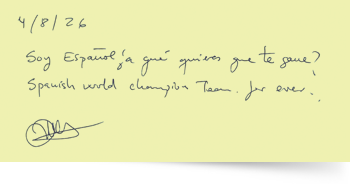 4/8/26
Soy Español ¿a qué quieres que te gane?
Spanish world champion Team. for ever!